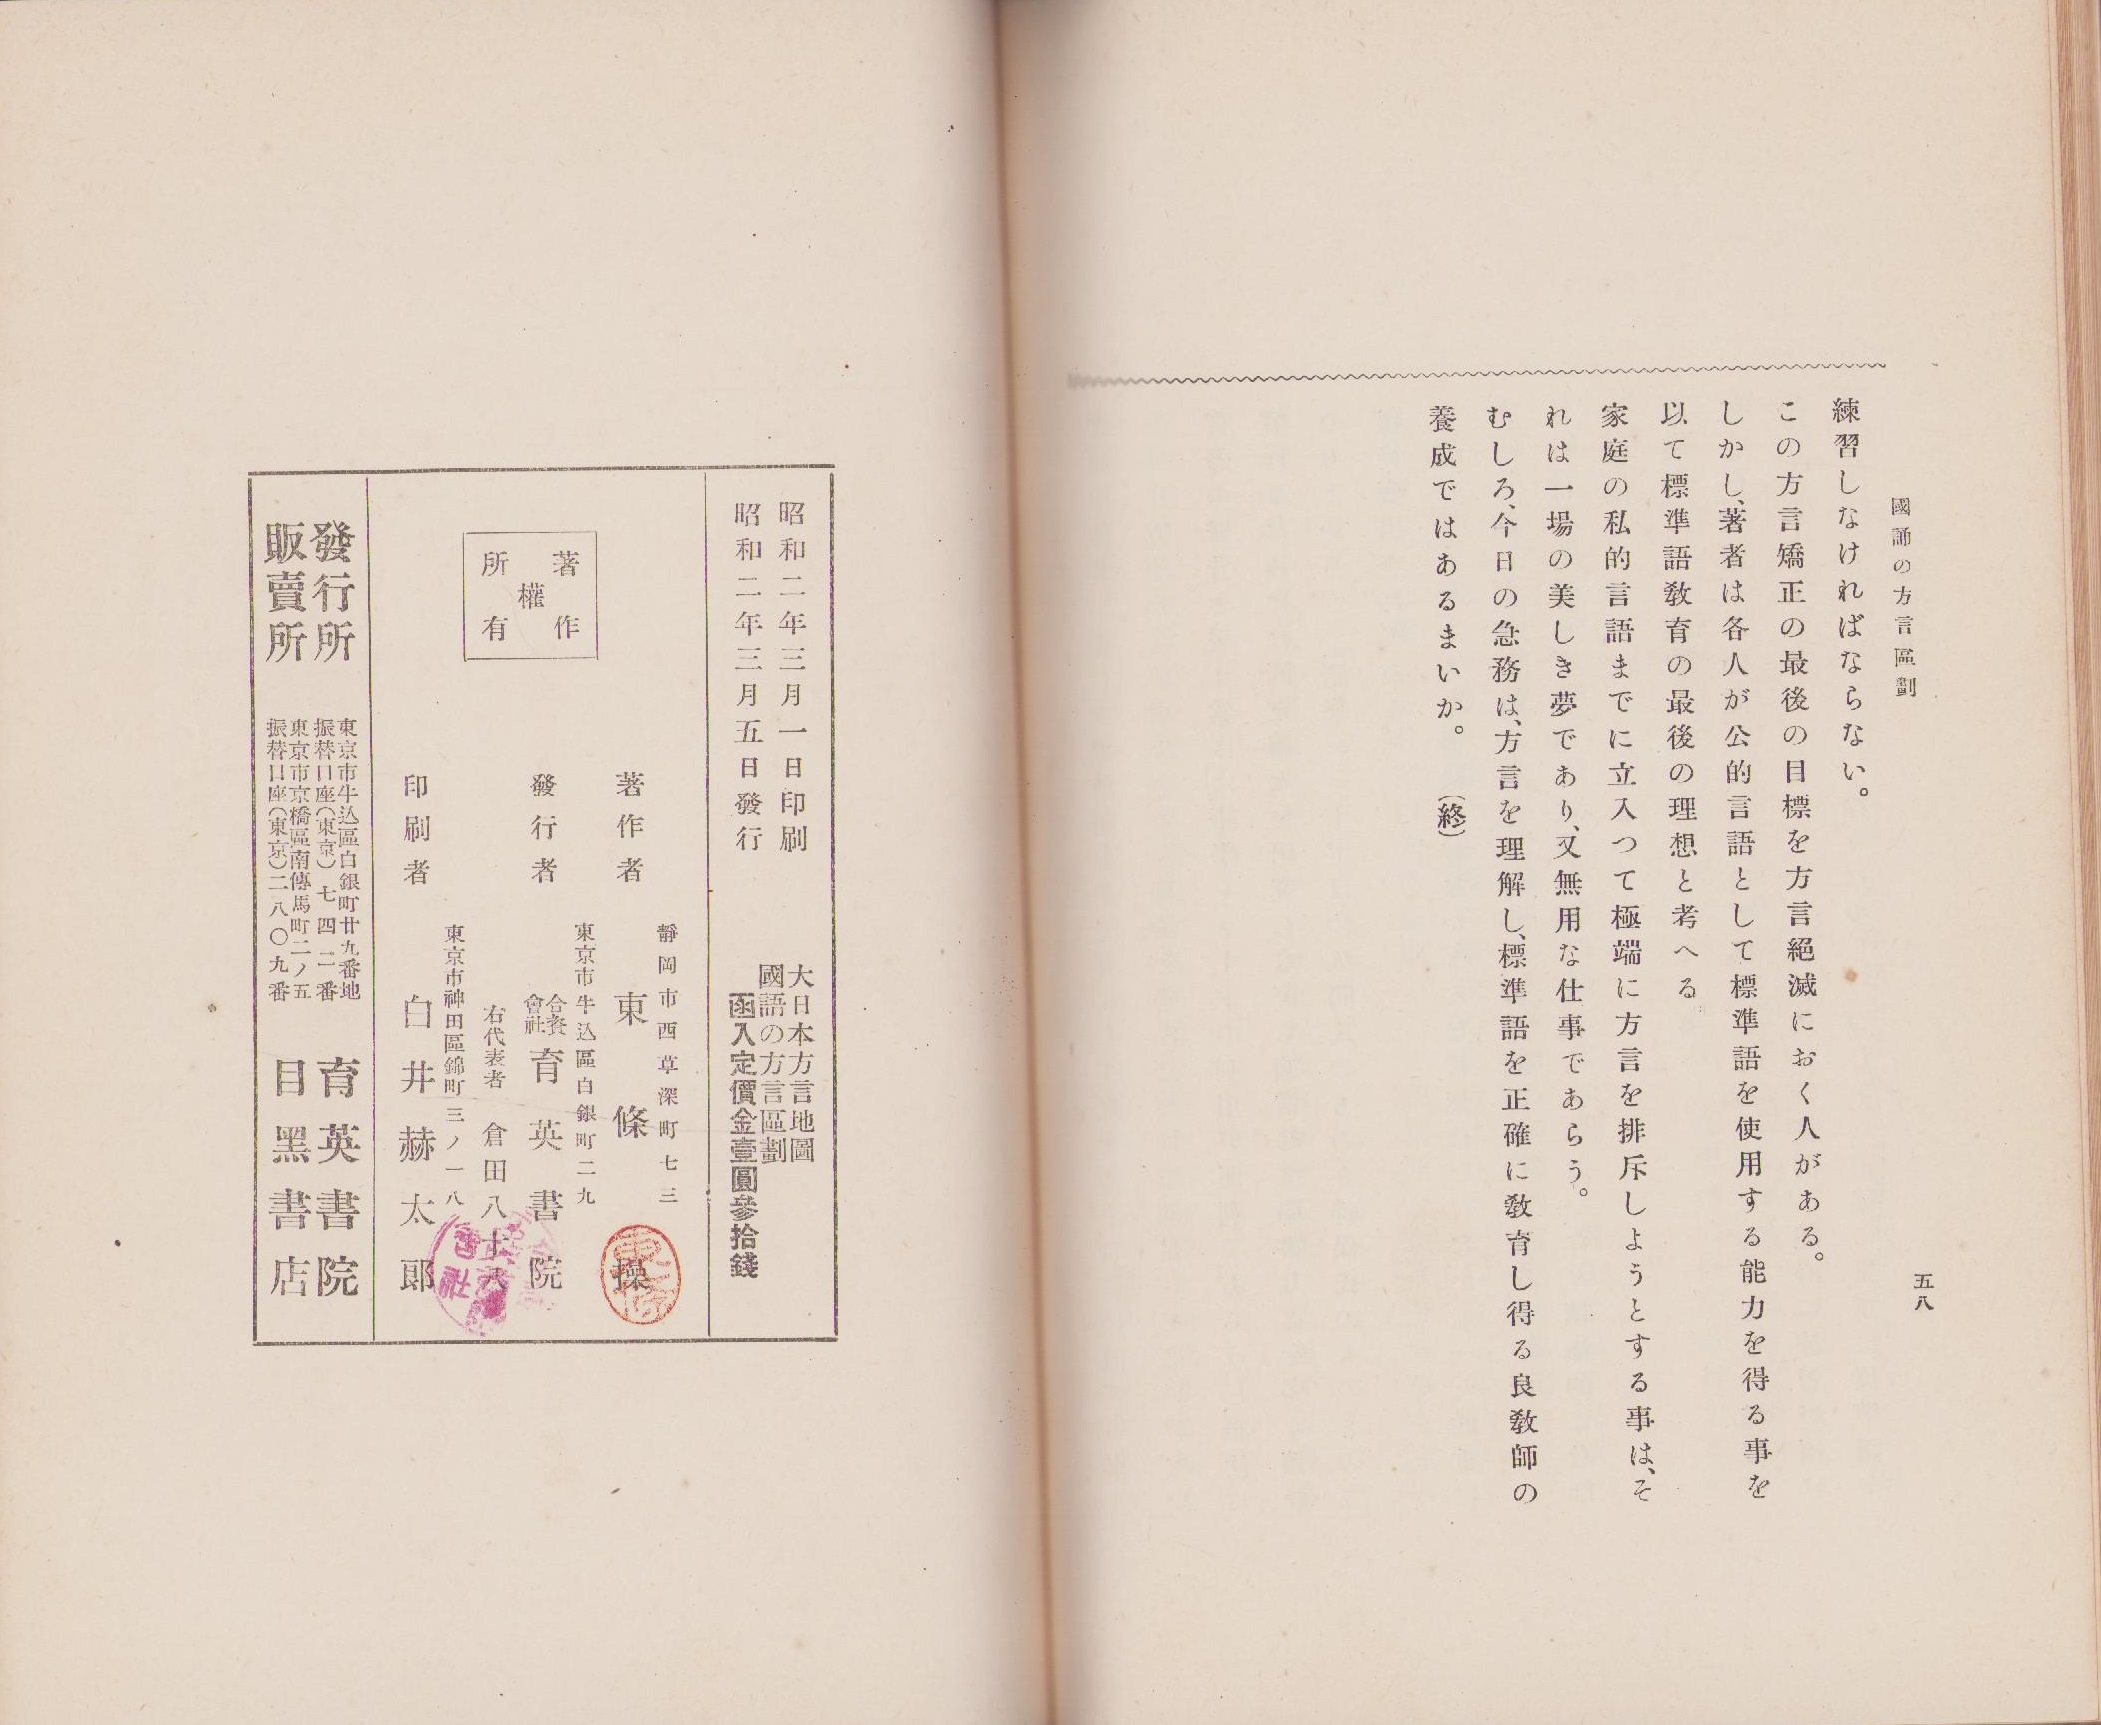 國誦の方言區劃
五八
練習しなければならない。
この方言矯正の最後の目標を方言絕滅におく人がある。
しかし、著者は各人が公的言語として標準語を使用する能力を得る事を
以て標準語敎育の最後の理想と考へる
家庭の私的言語までに立入つて極端に方言を排斥しようとする事は、そ
れは一場の美しき夢であり、又無用な仕事であらう。
むしろ、今日の急務は、方言を理解し、標準語を正確に敎育し得る良敎師の
養成ではあるまいか。 (終)
昭和二年三月一日印刷
昭和二年三月五日發行
大日本方言地圖
國語の方言區劃
函入定價金壹圓參拾錢
著作
權
所有
靜岡市西草深町七三
著作者 東條操
東京市牛込區白銀町二九
發行者 合資會社 育英書院
右代表者 倉田八十八
東京市神田區錦町三ノ一八
印刷者 白井赫太郞
發行所 東京市牛込區白銀町廿九番地 振替口座(東京)七四二番 育英書院
販賣所 東京市京橋區南傳馬町二ノ五 振替口座(東京)二八〇九番 目黑書店